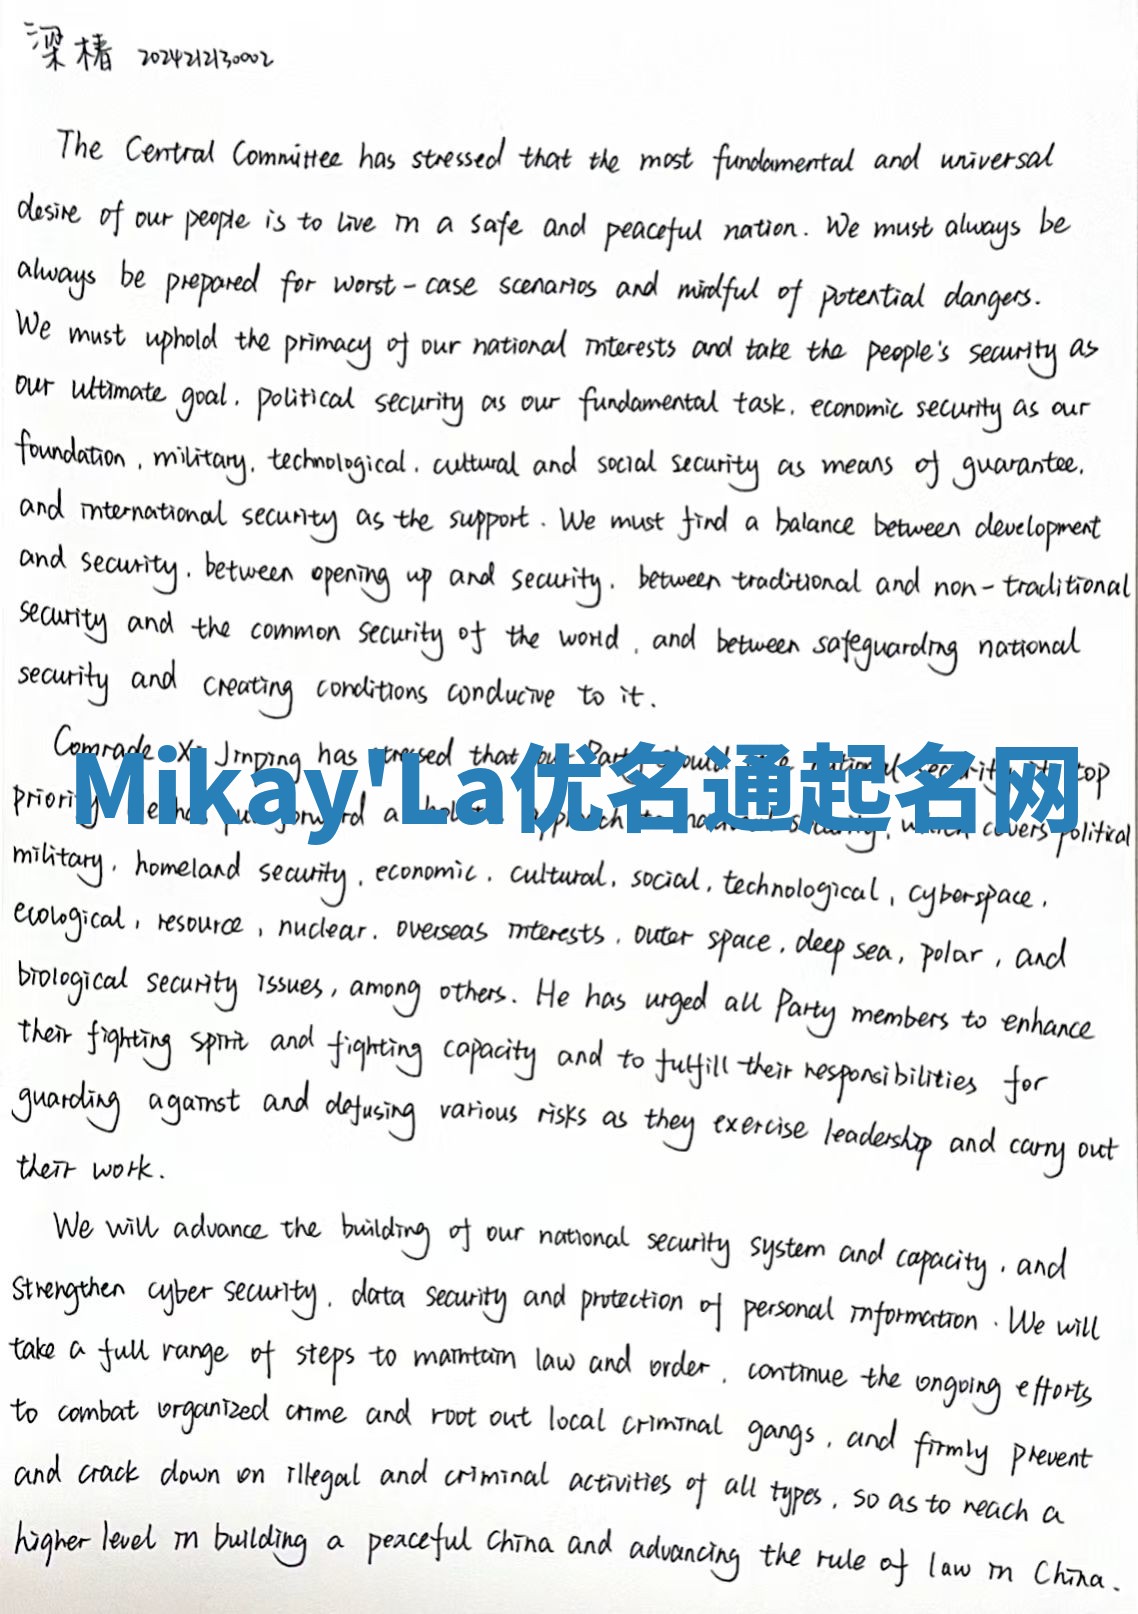 梁椿 2024212130002
The Central Committee has stressed that the most fundamental and universal
desire of our people is to live in a safe and peaceful nation. We must always be
always be prepared for worst-case scenarios and mindful of potential dangers.
We must uphold the primacy of our national interests and take the people's security as
our ultimate goal, political security as our fundamental task, economic security as our
foundation, military, technological, cultural and social security as means of guarantee,
and international security as the support. We must find a balance between development
and security, between opening up and security, between traditional and non-traditional
security and the common security of the world, and between safeguarding national
security and creating conditions conducive to it.
Comrade Xi Jinping has stressed that our Party should national security its top
Mikay'La优名通起名网
priority put forward a holistic approach to national security, which covers political
military, homeland security, economic, cultural, social, technological, cyberspace,
ecological, resource, nuclear, overseas interests, outer space, deep sea, polar, and
biological security issues, among others. He has urged all Party members to enhance
their fighting spirit and fighting capacity and to fulfill their responsibilities for
guarding against and defusing various risks as they exercise leadership and carry out
their work.
We will advance the building of our national security system and capacity, and
strengthen cyber security, data security and protection of personal information. We will
take a full range of steps to maintain law and order, continue the ongoing efforts
to combat organized crime and root out local criminal gangs, and firmly prevent
and crack down on illegal and criminal activities of all types, so as to reach a
higher level in building a peaceful China and advancing the rule of law in China.